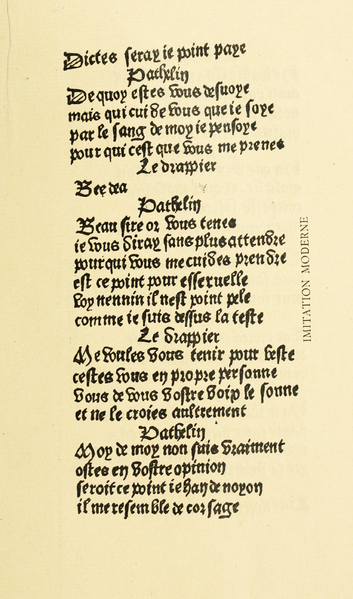 Dictes seray ie point paye
Pathelin
De quoy estes vous desuoye
mais qui cuide vous que ie soye
par le sang de moy ie pensoye
pour qui cest que vous me prenes
Le drappier
Bee dea
Pathelin
Beau sire or vous tenes
ie vous diray sans plus attendre
pour qui vous me cuides prendre
est ce point pour esseruelle
voy nennin il nest point pele
comme ie suis dessus la teste
Le drappier
Me voules vous tenir pour beste
cestes vous en propre personne
vous de vous vostre voip le sonne
et ne le croies aultrement
Pathelin
Moy de moy non suis vraiment
ostes en vostre opinion
seroit ce point iehan de noyon
il me resemble de corsage
IMITATION MODERNE